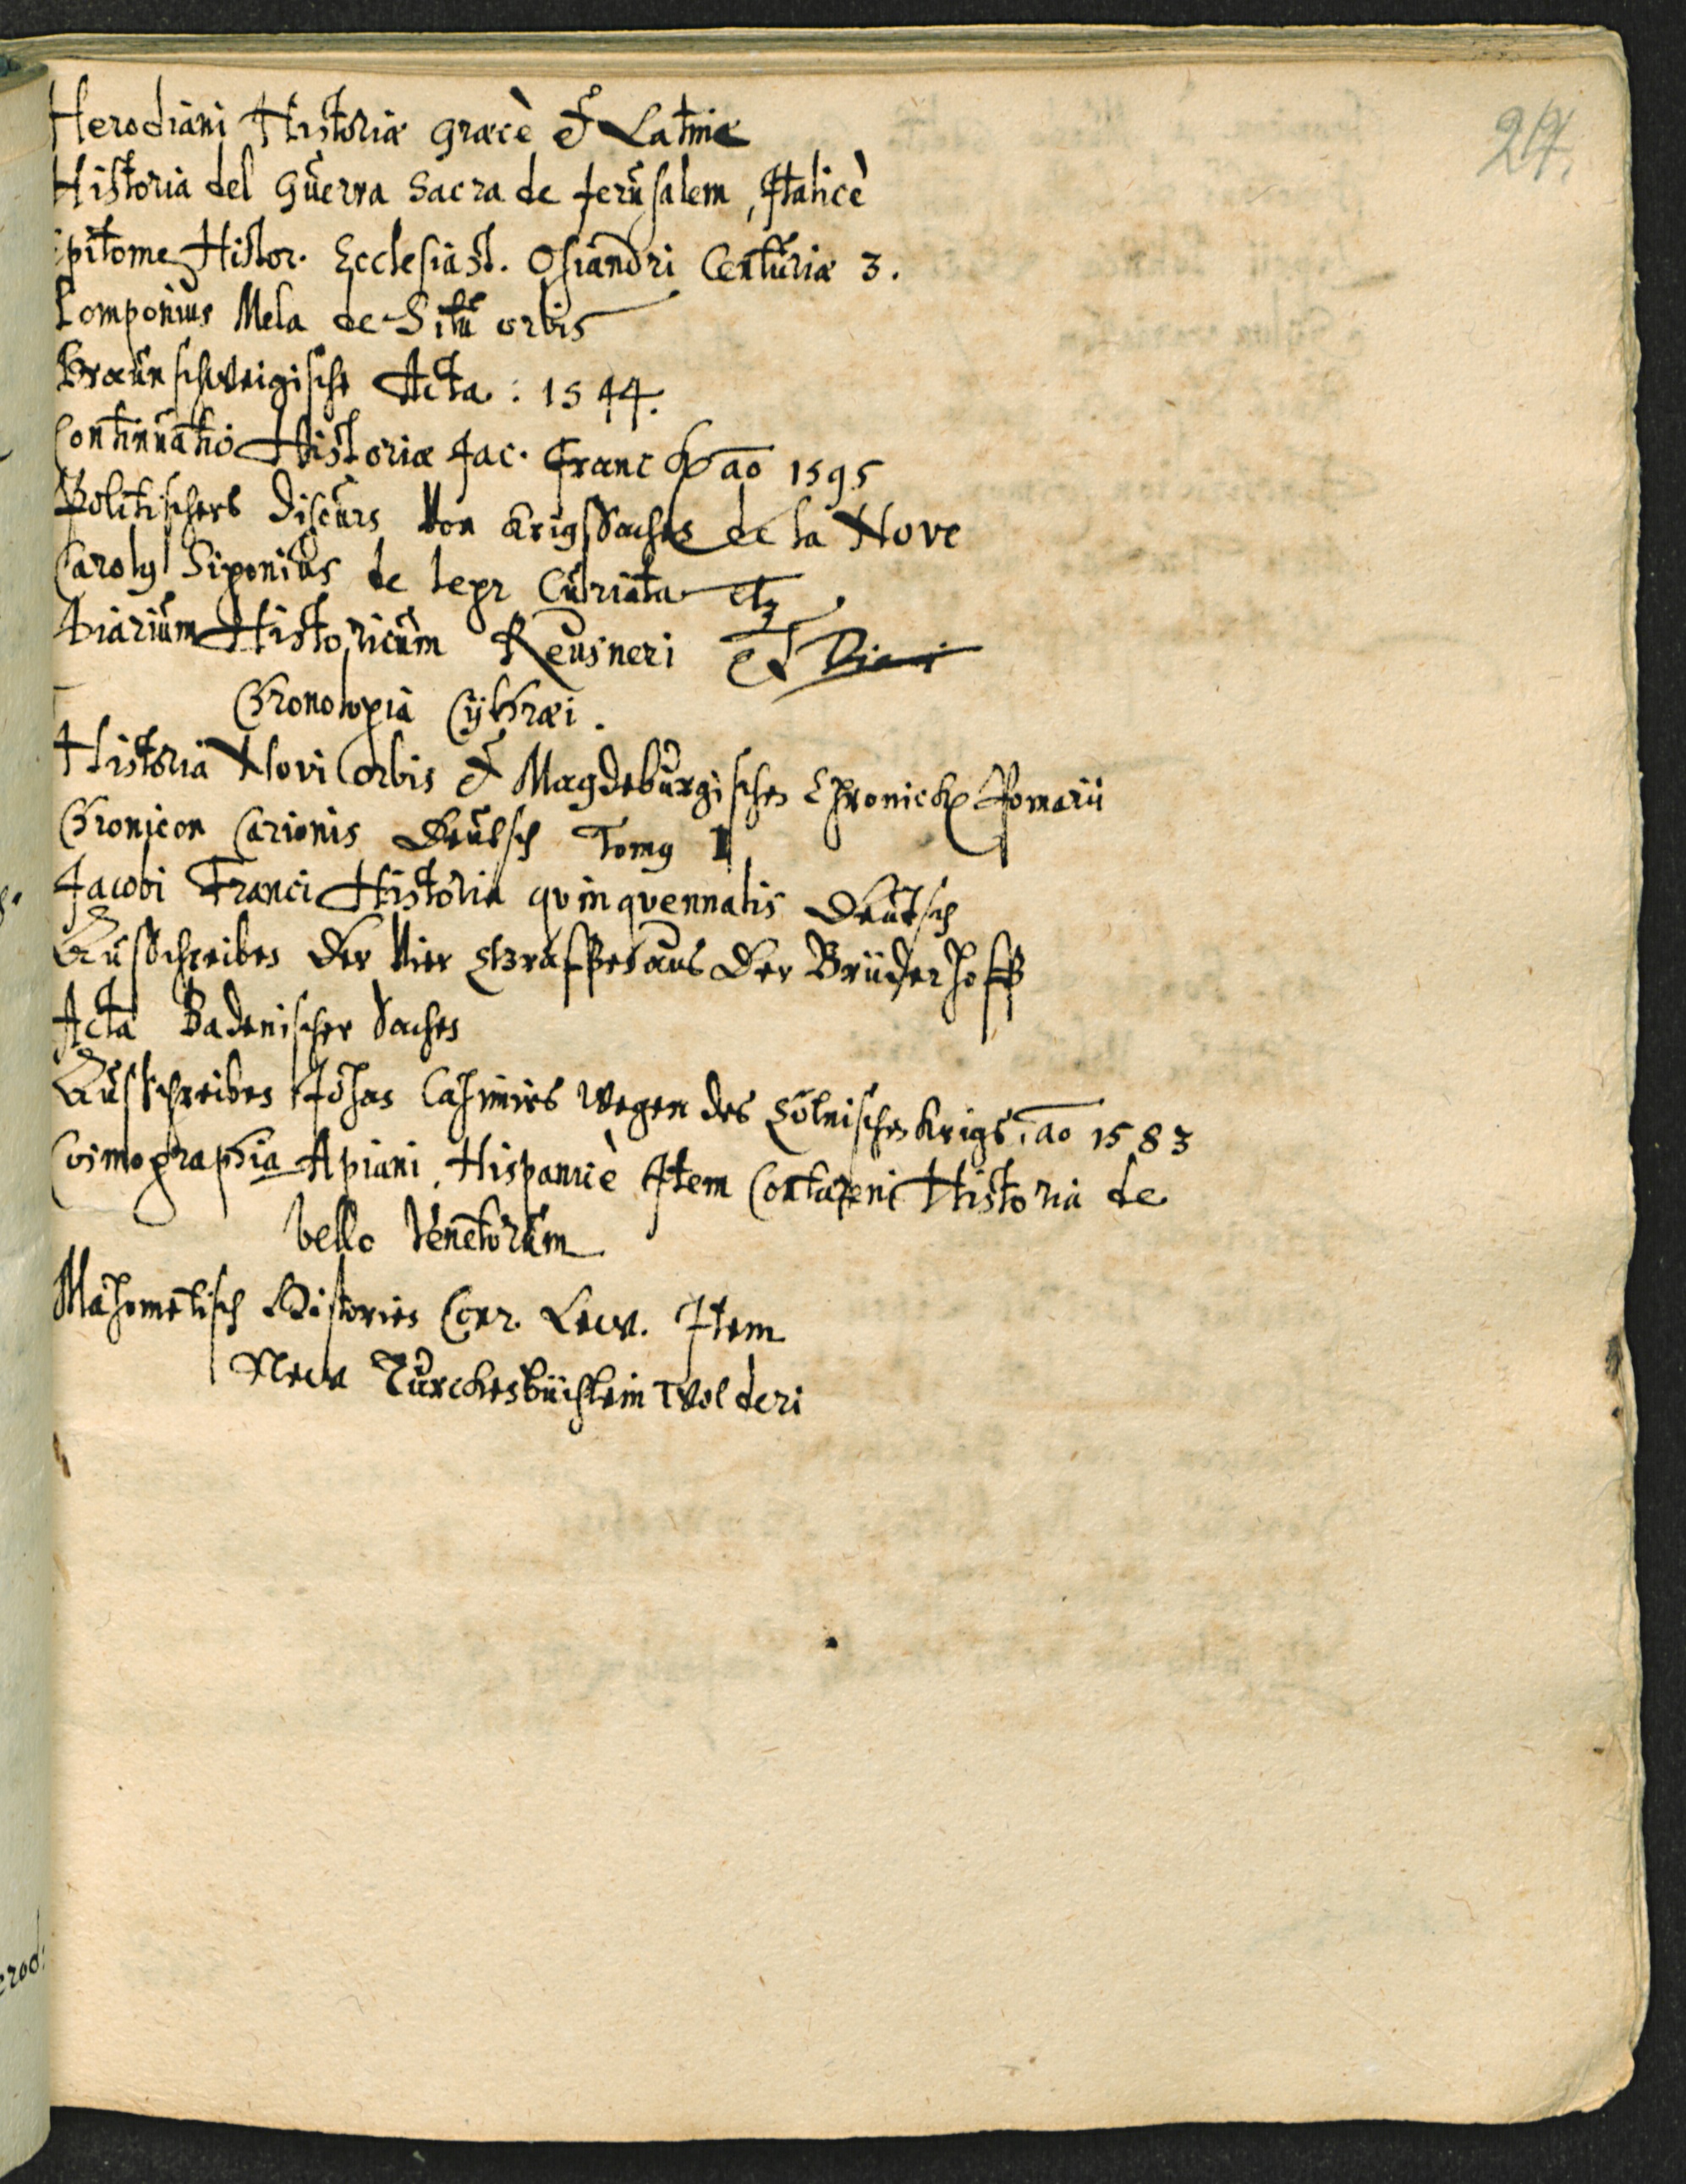 27.
Herodiani Historiæ græcè et Latinè
Historia del Guerra Sacra de Jerusalem, Italicè
Epitome Histor. Ecclesiast. Osiandri Centuriæ 3.
Pomponius Mela de Situ orbis
Braunschweigische Acta: 1544.
Continuatio Historiæ Jac. Franck ao 1595
Politischers Discurs von Krigssachen de la Nove
Caroly Sigonius de lege Curiata etz.
Diarium Historicum Reusneri et
Chronologia Cythræi.
Historia Novi Orbis et Magdeburgischen Chronick Pomarii
Chronicon Carionis Deutsch Tomus I
Jacobi Franci Historia qvinqvennalis Deutsch
Ausschreiben der vier Graffen aus der Brüderhoff
Acta Badenischer Sachen
Ausschreiben Johan Casimirs wegen des Cölnischen Krigs, ao 1583
Cosmographia Apiani, Hispanicè Item Contareni Historia de
bello Venetorum
Mahometisch Histories Conr. Lew. Item
New Türckenbüchlein Wolderi
erod: